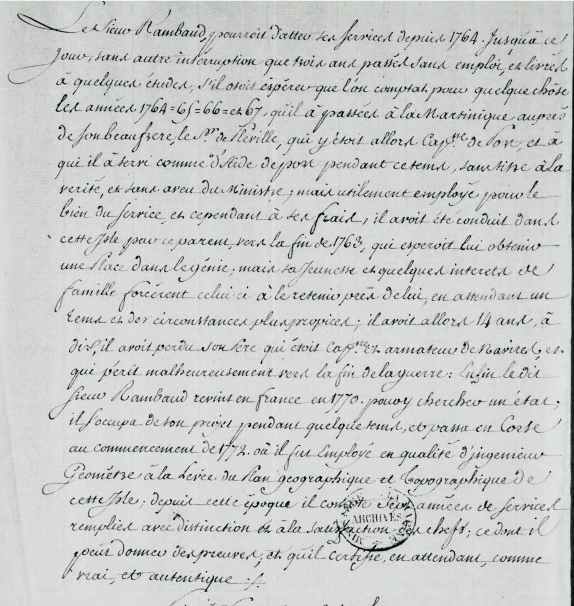 Le Sieur Rambaud, pourroit datter ses services depuis 1764. Jusqu'à ce
Jour, sans autre interruption que trois ans passés sans emploi, et livrés
à quelques études, s'il osoit espérer que l'on comptat pour quelque chose
les années 1764=65=66=et 67, qu'il à passées à la Martinique auprès
de son beaufrere, le Sr. de Fléville, qui y étoit allors Capne. de Port, et à
qui il à servi comme d'Aide de port pendant ce tems, sans titre à la
verité, et sans aveu du Ministre; mais utilement employé pour le
bien du service, et cependant à ses frais; il avoit été conduit dans
cette Isle par ce parent, vers la fin de 1763, qui esperoit lui obtenir
une Place dans le génie; mais sa Jeunesse et quelques interets de
famille forcérent celui ci à le retenir près de lui, en attendant un
tems et des circonstances plus propices; il avoit allors 14 ans, à
dix, il avoit perdu son Pere qui étoit Capne. et armateur de Navires, et
qui périt malheureusement vers la fin de la guerre: Enfin le dit
Sieur Rambaud revint en france en 1770. pour y chercher un état;
il s'occupa de son projet pendant quelque tems, et passa en Corse
au commencement de 1772. où il fut Employé en qualité d'ingenieur
Géométre à la Levée du Plan géographique et Topographique de
cette Isle; depuis cette époque il compte sept années de services
remplies avec distinction et à la satisfaction des chefs; ce dont il
peut donner des preuves, et qu'il certifie, en attendant, comme
vrai, et autentique ./.
ARCHIVES